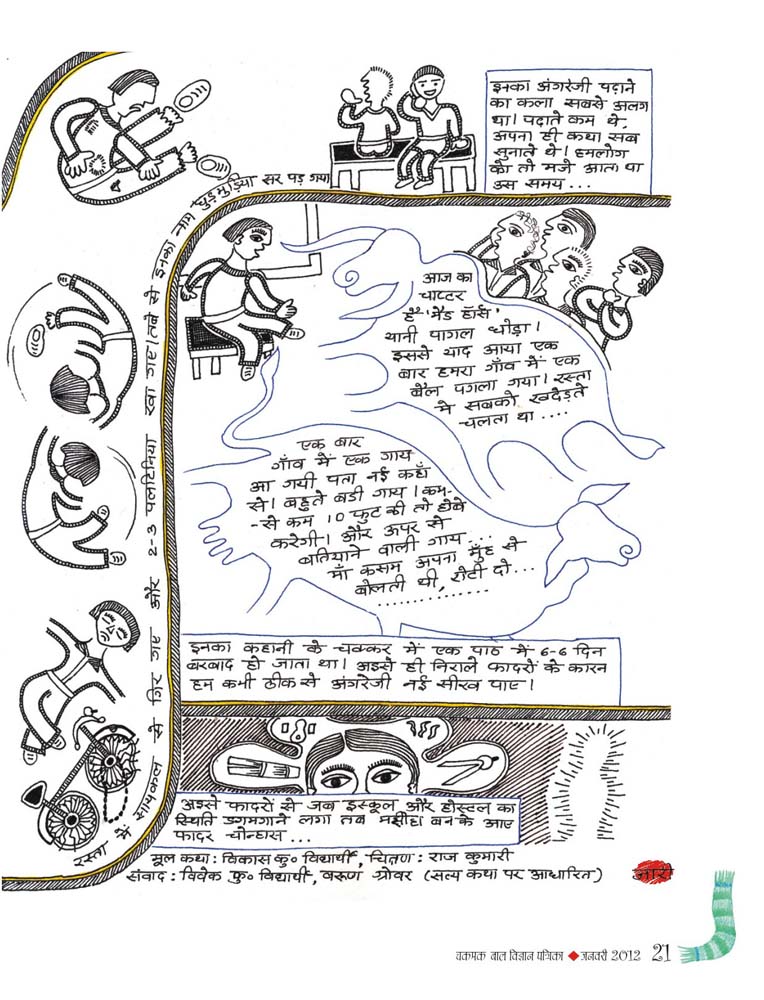 रस्ता में सायकल से गिर गए और 2-3 पलटिनिया खा गए। तबे से इनका नाम घुड़मुड़िया सर पड़ गया
इनका अंगरेजी पढ़ाने
का कला सबसे अलग
था। पढ़ाते कम थे,
अपना ही कथा सब
सुनाते थे। हमलोग
को तो मजे आता था
उस समय...
आज का
चाप्टर
है 'मैड हॉर्स'
यानी पागल घोड़ा।
इससे याद आया एक
बार हमरा गाँव में एक
बैल पगला गया। रस्ता
में सबको खदेड़ते
चलता था ....
एक बार
गाँव में एक गाय
आ गयी पता नई कहाँ
से। बहुते बड़ी गाय। कम-
-से कम 10 फुट की तो होबे
करेगी। और ऊपर से
बतियाने वाली गाय...
माँ कसम अपना मुँह से
बोलती थी, रोटी दो...
.............
इनका कहानी के चक्कर में एक पाठ में 6-6 दिन
बरबाद हो जाता था। अइसे ही निराले फादरों के कारन
हम कभी ठीक से अंगरेजी नई सीख पाए।
अइसे फादरों से जब इस्कूल और होस्टल का
स्थिति डगमगाने लगा तब मसीहा बन के आए
फादर चोन्हास ...
मूल कथा : विकास कु० विद्यार्थी, चित्रण : राज कुमारी
संवाद : विवेक कु० विद्यार्थी, वरूण ग्रोवर (सत्य कथा पर आधारित)
जारी
चकमक बाल विज्ञान पत्रिका ◆ जनवरी 2012 21